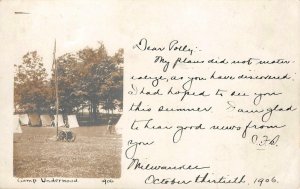 Dear Polly:-
My plans did not mater-
ialize, as you have discovered.
I had hoped to see you
this summer. I am glad
to hear good news from
you
C.F.B.
Milwaukee
October thirtieth, 1906.
Camp Underwood 906